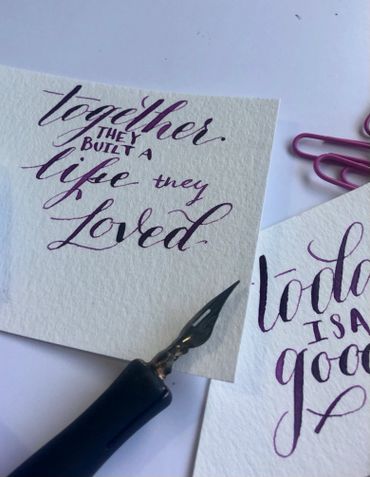 together
THEY
BUILT A
life they
Loved
IS A